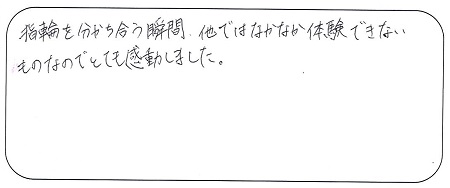 指輪を分かち合う瞬間、他ではなかなか体験できない
ものなのでとても感動しました。